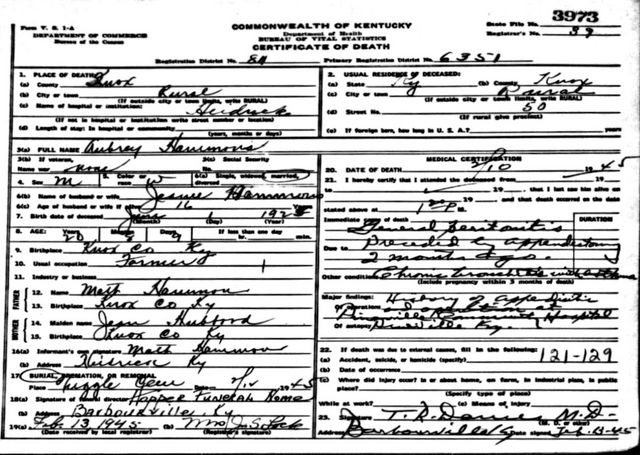 Form V. S. 1-A
DEPARTMENT OF COMMERCE
Bureau of the Census
COMMONWEALTH OF KENTUCKY
Department of Health
BUREAU OF VITAL STATISTICS
CERTIFICATE OF DEATH
State File No. 3973
Registrar's No. 39
Registration District No. 811
Primary Registration District No. 6351
1. PLACE OF DEATH:
(a) County Knox
(b) City or town Rural
(If outside city or town limits, write RURAL)
(c) Name of hospital or institution: Heidrick
(If not in hospital or institution write street number or location)
(d) Length of stay: In hospital or community
(years, months or days)
2. USUAL RESIDENCE OF DECEASED:
(a) State Ky (b) County Knox
(c) City or town Rural
(If outside city or town limits, write RURAL)
(d) Street No. 50
(If rural give precinct)
(e) If foreign born, how long in U. S. A.?
3(a) FULL NAME Aubrey Hammons
3(b) If veteran, Name war none
3(c) Social Security No.
4. Sex M 5. Color or race W 6(a) Single, widowed, married, divorced
6(b) Name of husband or wife Hammons
6(c) Age of husband or wife if alive 16
7. Birth date of deceased June 192
(Month) (Day) (Year)
8. AGE: Years 20 Months Days 9 If less than one day hr. min.
9. Birthplace Knox Co Ky
10. Usual occupation Farmer
11. Industry or business
FATHER
12. Name Matt Hammon
13. Birthplace Knox Co Ky
MOTHER
14. Maiden name Hubbard
15. Birthplace Knox Co Ky
16(a) Informant's own signature Matt Hammon
(b) Address Heidrick Ky
17. BURIAL, CREMATION, OR REMOVAL
Place Date 2/12 1945
18(a) Signature of funeral director Hopper Funeral Home
(b) Address Barbourville, Ky
19(a) Feb. 13 1945 (b) Mrs J. S.
(Date received by local registrar) (Registrar's signature)
MEDICAL CERTIFICATION
20. DATE OF DEATH 2/10 1945
21. I hereby certify that I attended the deceased from
19 , to 19 , that I last saw him alive on
19 , and that death occurred on the date
stated above at 1 P M.
Immediate cause of death
DURATION
General peritonitis
Due to Preceded by appendectomy
2 months ago.
Other conditions Chronic bronchitis with asthma
(Include pregnancy within 3 months of death)
Major findings: History of appendicitis
Of operation
Pineville Hospital
Of autopsy Pineville Ky.
22. If death was due to external causes, fill in the following:
(a) Accident, suicide, or homicide (specify) 121-129
(b) Date of occurrence
(c) Where did injury occur? In or about home, on farm, in industrial plans, in public
place?
(Specify type of place)
While at work? (e) Means of injury
23. Signature T. R. Davies M.D.
(M. D. or other)
Address Barbourville Ky Date signed Feb. 13-45